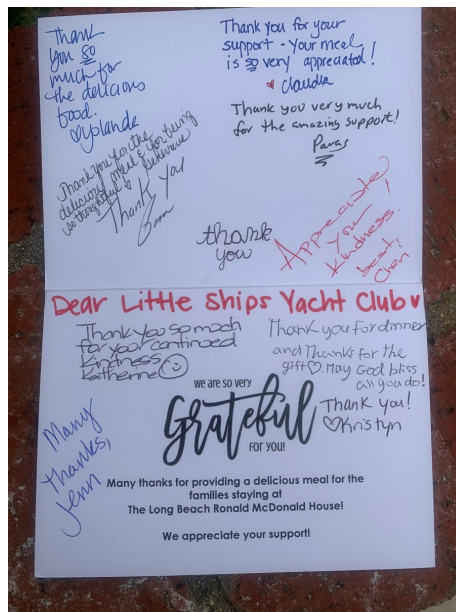 Thank
you so
much for
the delicious
food.
♡Yolanda
Thank you for your
support - your meal
is so very appreciated!
♥ Claudia
Thank you very much
for the amazing support!
Paras
Thank you for the
delicious meal & for being
so thoughtful &
Thank you
thank
you
Appreciate
your
kindness.
best,
Cheri
Dear Little Ships Yacht Club♥
Thank you so much
for your continued
kindness
Katherine
Thank you for dinner
and Thanks for the
gift♡. May God bliss
all you do!
Thank you!
♡Kristyn
Many
Thanks,
Jenn
we are so very
Grateful
FOR YOU!
Many thanks for providing a delicious meal for the
families staying at
The Long Beach Ronald McDonald House!
We appreciate your support!